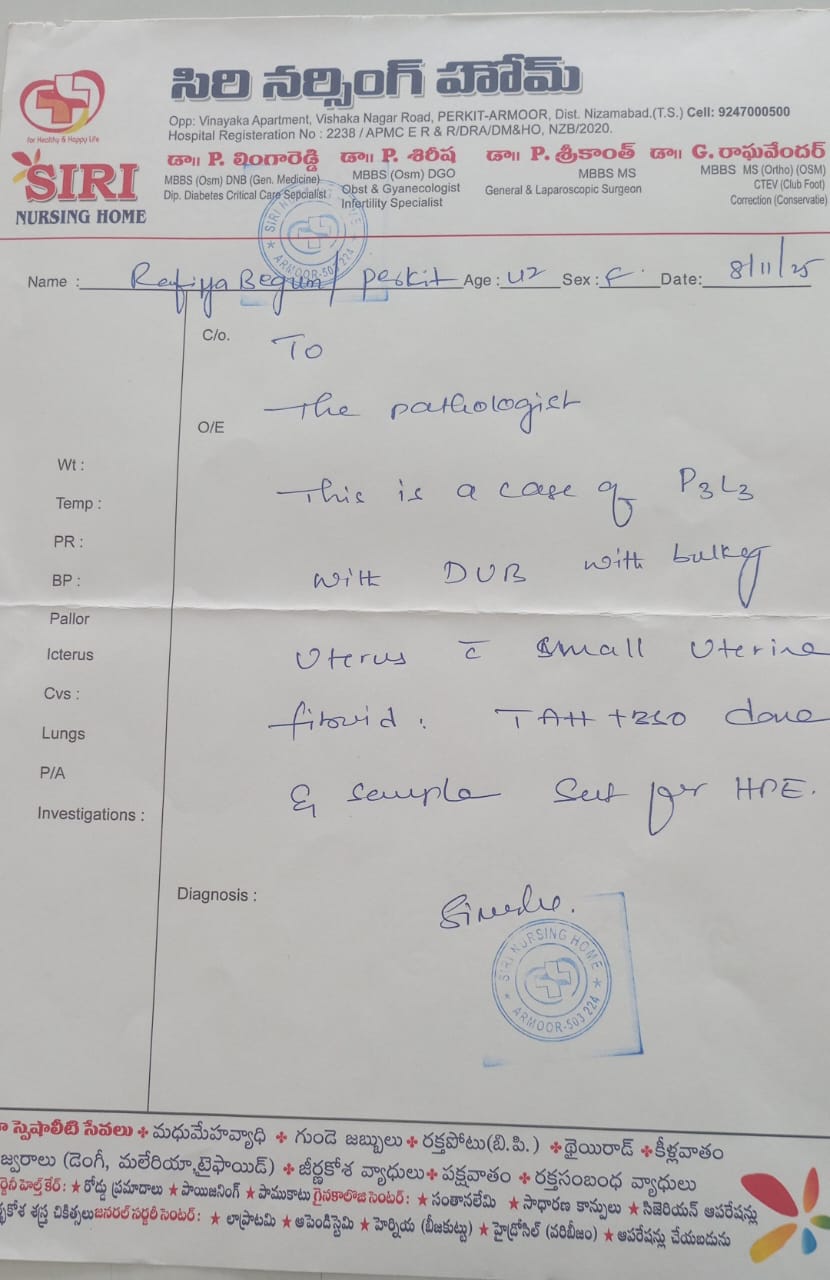 సిరి నర్సింగ్ హోమ్
Opp: Vinayaka Apartment, Vishaka Nagar Road, PERKIT-ARMOOR, Dist. Nizamabad.(T.S.) Cell: 9247000500
Hospital Registeration No : 2238 / APMC E R & R/DRA/DM&HO, NZB/2020.
for Healthy & Happy Life
SIRI
NURSING HOME
డా॥ P. లింగారెడ్డి
MBBS (Osm) DNB (Gen. Medicine)
Dip. Diabetes Critical Care Sepcialist
డా॥ P. శిరీష
MBBS (Osm) DGO
Obst & Gyanecologist
Infertility Specialist
డా॥ P. శ్రీకాంత్
MBBS MS
General & Laparoscopic Surgeon
డా॥ G. రాఘవేందర్
MBBS MS (Ortho) (OSM)
CTEV (Club Foot)
Correction (Conservatie)
SIRI NURSING HOME
ARMOOR-503 224
Name : Rafiya Begum / Perkit Age : 42 Sex : F Date: 8/11/25
C/o.
To
The pathologist
O/E
Wt :
This is a case of P3L3
Temp :
PR :
with DUB with bulky
BP :
Pallor
Uterus c̄ small Uterine
Icterus
Cvs :
fibroid. TAH + BSO done
Lungs
P/A
& sample sent for HPE.
Investigations :
Diagnosis :
SIRI NURSING HOME
ARMOOR-503 224
స్పెషాలిటీ సేవలు ✤ మధుమేహవ్యాధి ✤ గుండె జబ్బులు ✤ రక్తపోటు(బి.పి.) ✤ థైయిరాడ్ ✤ కీళ్లవాతం
జ్వరాలు (డెంగీ, మలేరియా,టైఫాయిడ్) ✤ జీర్ణకోశ వ్యాధులు ✤ పక్షవాతం ✤ రక్తసంబంధ వ్యాధులు
హెల్త్ కేర్: ★ రోడ్డు ప్రమాదాలు ★ పాయిజనింగ్ ★ పాముకాటు గైనకాలజి సెంటర్: ★ సంతానలేమి ★ సాధారణ కాన్పులు ★ సిజెరియన్ ఆపరేషన్లు
శస్త్ర చికిత్సలు జనరల్ సర్జరీ సెంటర్: ★ లాప్రాటమి ★ అపెండిస్టెమి ★ హెర్నియ (బీజకుట్టు) ★ హైడ్రోసిల్ (వరిబీజం) ★ ఆపరేషన్లు చేయబడును